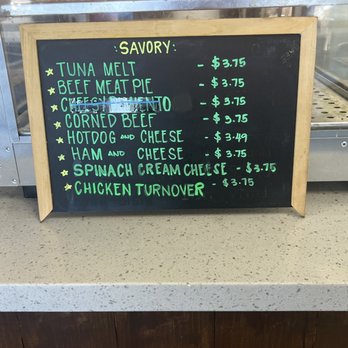 : SAVORY :
TUNA MELT - $3.75
BEEF MEAT PIE - $3.75
CHEESY PIMENTO - $3.75
CORNED BEEF - $3.75
HOTDOG AND CHEESE - $3.49
HAM AND CHEESE - $3.75
SPINACH CREAM CHEESE - $3.75
CHICKEN TURNOVER - $3.75